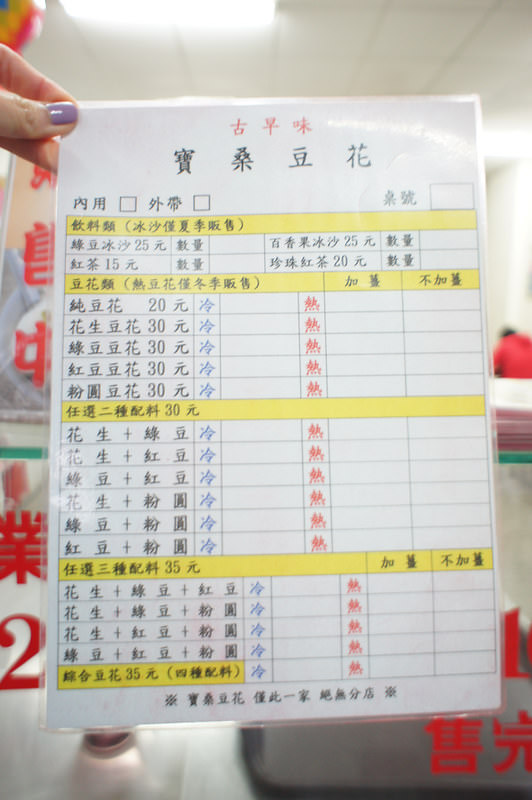 古早味
寶桑豆花
內用 □ 外帶 □ 桌號
飲料類(冰沙僅夏季販售)
綠豆冰沙25元 數量 百香果冰沙25元 數量
紅茶15元 數量 珍珠紅茶20元 數量
豆花類(熱豆花僅冬季販售) 加薑 不加薑
純豆花 20元 冷 熱
花生豆花30元 冷 熱
綠豆豆花30元 冷 熱
紅豆豆花30元 冷 熱
粉圓豆花30元 冷 熱
任選二種配料30元
花生+綠豆 冷 熱
花生+紅豆 冷 熱
綠豆+紅豆 冷 熱
花生+粉圓 冷 熱
綠豆+粉圓 冷 熱
紅豆+粉圓 冷 熱
任選三種配料35元 加薑 不加薑
花生+綠豆+紅豆 冷 熱
花生+綠豆+粉圓 冷 熱
花生+紅豆+粉圓 冷 熱
綠豆+紅豆+粉圓 冷 熱
綜合豆花35元(四種配料) 冷 熱
※ 寶桑豆花 僅此一家 絕無分店 ※
售中
業
2
售完